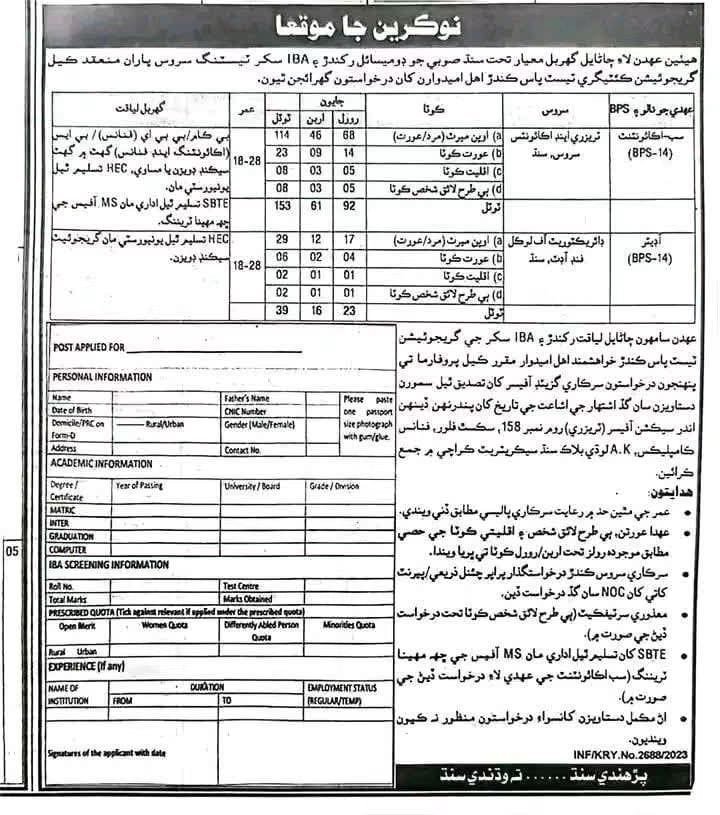 نوڪرين جا موقعا
هيٺين عهدن لاءِ ڄاڻايل گهربل معيار تحت سنڌ صوبي جو ڊوميسائل رکندڙ ۽ IBA سکر ٽيسٽنگ سروس پاران منعقد ڪيل
گريجوئيشن ڪئٽيگري ٽيسٽ پاس ڪندڙ اهل اميدوارن کان درخواستون گهرائجن ٿيون.
عهدي جو نالو ۽ BPS سروس ڪوٽا جايون عمر گهربل لياقت
رورل اربن ٽوٽل
سب-اڪائونٽنٽ (BPS-14) ٽريزري اينڊ اڪائونٽس سروس، سنڌ 18-28
a) اوپن ميرٽ (مرد/عورت) 68 46 114
b) عورت ڪوٽا 14 09 23
c) اقليت ڪوٽا 05 03 08
d) ٻي طرح لائق شخص ڪوٽا 05 03 08
ٽوٽل 92 61 153
بي ڪام/بي بي اي (فنانس)/بي ايس
(اڪائونٽنگ اينڊ فنانس) گهٽ ۾ گهٽ
سيڪنڊ ڊويزن يا مساوي، HEC تسليم ٿيل
يونيورسٽي مان.
SBTE تسليم ٿيل اداري مان MS آفيس جي
ڇهه مهينا ٽريننگ.
آڊيٽر (BPS-14) ڊائريڪٽوريٽ آف لوڪل فنڊ آڊٽ، سنڌ 18-28
a) اوپن ميرٽ (مرد/عورت) 17 12 29
b) عورت ڪوٽا 04 02 06
c) اقليت ڪوٽا 01 01 02
d) ٻي طرح لائق شخص ڪوٽا 01 01 02
ٽوٽل 23 16 39
HEC تسليم ٿيل يونيورسٽي مان گريجوئيٽ
سيڪنڊ ڊويزن.
عهدن سامهون ڄاڻايل لياقت رکندڙ ۽ IBA سکر جي گريجوئيشن
ٽيسٽ پاس ڪندڙ خواهشمند اهل اميدوار مقرر ڪيل پروفارما تي
پنهنجون درخواستون سرڪاري گزيٽڊ آفيسر کان تصديق ٿيل سمورن
دستاويزن سان گڏ اشتهار جي اشاعت جي تاريخ کان پندرنهن ڏينهن
اندر سيڪشن آفيسر (ٽريزري) روم نمبر 158، سڪسٿ فلور، فنانس
ڪامپليڪس، A.K لوڌي بلاڪ سنڌ سيڪريٽريٽ ڪراچي ۾ جمع
ڪرائين.
هدايتون:
• عمر جي مٿين حد ۾ رعايت سرڪاري پاليسي مطابق ڏني ويندي.
• عهدا عورتن، ٻي طرح لائق شخص ۽ اقليتي ڪوٽا جي حصي
مطابق موجوده رولز تحت اربن/رورل ڪوٽا تي ڀريا ويندا.
• سرڪاري سروس ڪندڙ درخواستگذار پراپر چئنل ذريعي/پيرنٽ
کاتي کان NOC سان گڏ درخواست ڏين.
• معذوري سرٽيفڪيٽ (ٻي طرح لائق شخص ڪوٽا تحت درخواست
ڏيڻ جي صورت ۾).
• SBTE کان تسليم ٿيل اداري مان MS آفيس جي ڇهه مهينا
ٽريننگ (سب اڪائونٽنٽ جي عهدي لاءِ درخواست ڏيڻ جي
صورت ۾).
• اڻ مڪمل دستاويزن کانسواءِ درخواستون منظور نه ڪيون
وينديون.
INF/KRY.No.2688/2023
پڙهندي سنڌ ...... ته وڌندي سنڌ
POST APPLIED FOR
PERSONAL INFORMATION
Name Father's Name
Date of Birth CNIC Number
Domicile/PRC on Form-D Rural/Urban Gender (Male/Female)
Address Contact No.
Please paste
one passport
size photograph
with gum/glue.
ACADEMIC INFORMATION
Degree / Certificate Year of Passing University / Board Grade / Division
MATRIC
INTER
GRADUATION
COMPUTER
IBA SCREENING INFORMATION
Roll No. Test Centre
Total Marks Marks Obtained
PRESCRIBED QUOTA (Tick against relevant if applied under the prescribed quota)
Open Merit Women Quota Differently Abled Person Quota Minorities Quota
Rural Urban
EXPERIENCE (If any)
NAME OF INSTITUTION DURATION EMPLOYMENT STATUS (REGULAR/TEMP)
FROM TO
Signatures of the applicant with date
05